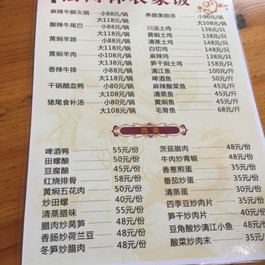 麻辣牛脚火锅 小88元/锅
大118元/锅
酸辣牛尾巴 小88元/锅
大118元/锅
黄焖羊蹄 小88元/锅
大118元/锅
黄焖羊肉 小88元/锅
大118元/锅
香辣牛排 小88元/锅
大118元/锅
干锅醋血鸭 小80元/锅
大108元/锅
猪尾膏补汤 小80元/锅
大108元/锅
川味土鸡 138元/只
黄焖土鸡 138元/只
清蒸土鸡 138元/只
白切鸡 138元/只
笋干焖土鸡 158元/只
清江鱼 45元/斤
鱼仔 60元/份
麻辣酸菜鱼 45元/斤
清蒸鱼 45元/斤
黄焖鱼 45元/斤
毛骨鱼 68元/斤
肉类
啤酒鸭 55元/份
田螺酿 50元/份
豆腐酿 45元/份
红烧排骨 58元/份
黄焖五花肉 50元/份
炒田螺 40元/份
清蒸腊味 55元/份
腊肉炒莴笋 48元/份
香肠炒荷兰豆 48元/份
冬笋炒腊肉 48元/份
茨菇腊肉 48元/份
牛肉炒青椒 48元/份
香葱煎蛋 30元/份
番茄炒蛋 30元/份
清蒸蛋 30元/份
四季豆炒肉片 35元/份
笋干炒肉片 40元/份
豆角酸炒清江小鱼 48元/份
酸菜炒肉末 35元/份